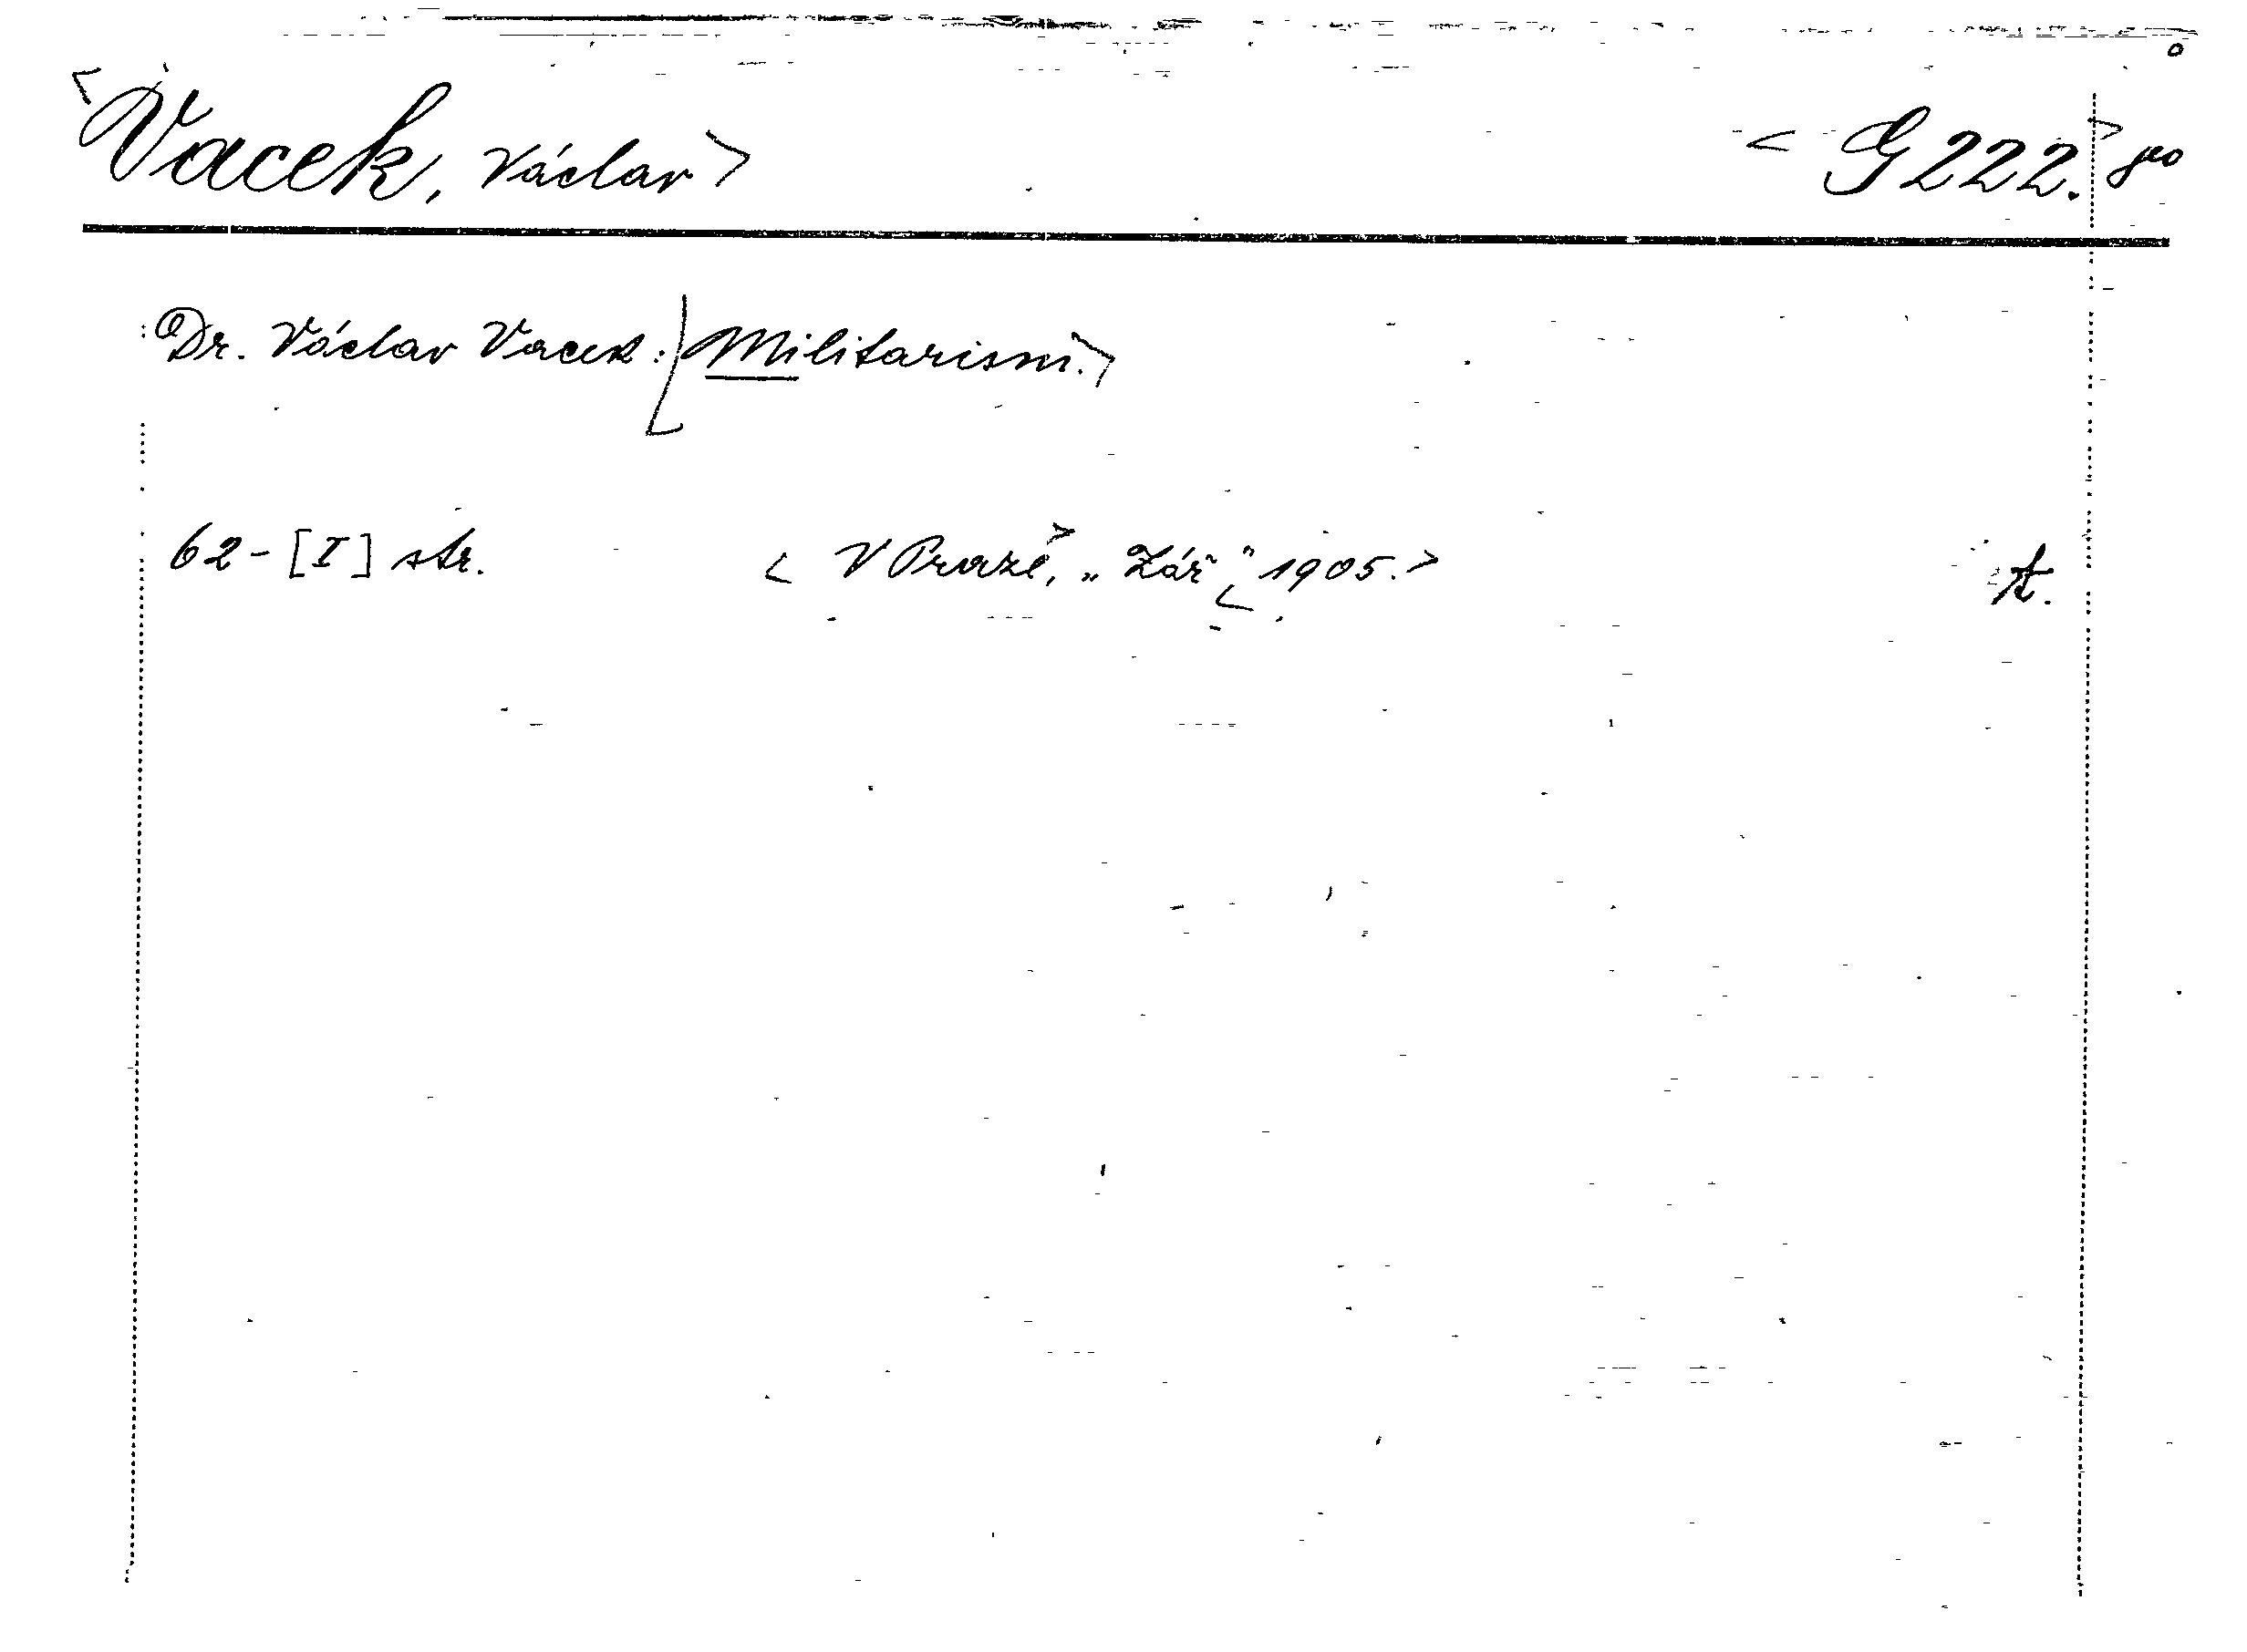 <Vacek, Václav> < G 222.>
Dr. Václav Vacek: [Militarism.>
62-[I] str. < V Praze,> „Zář“, < 1905.> A.